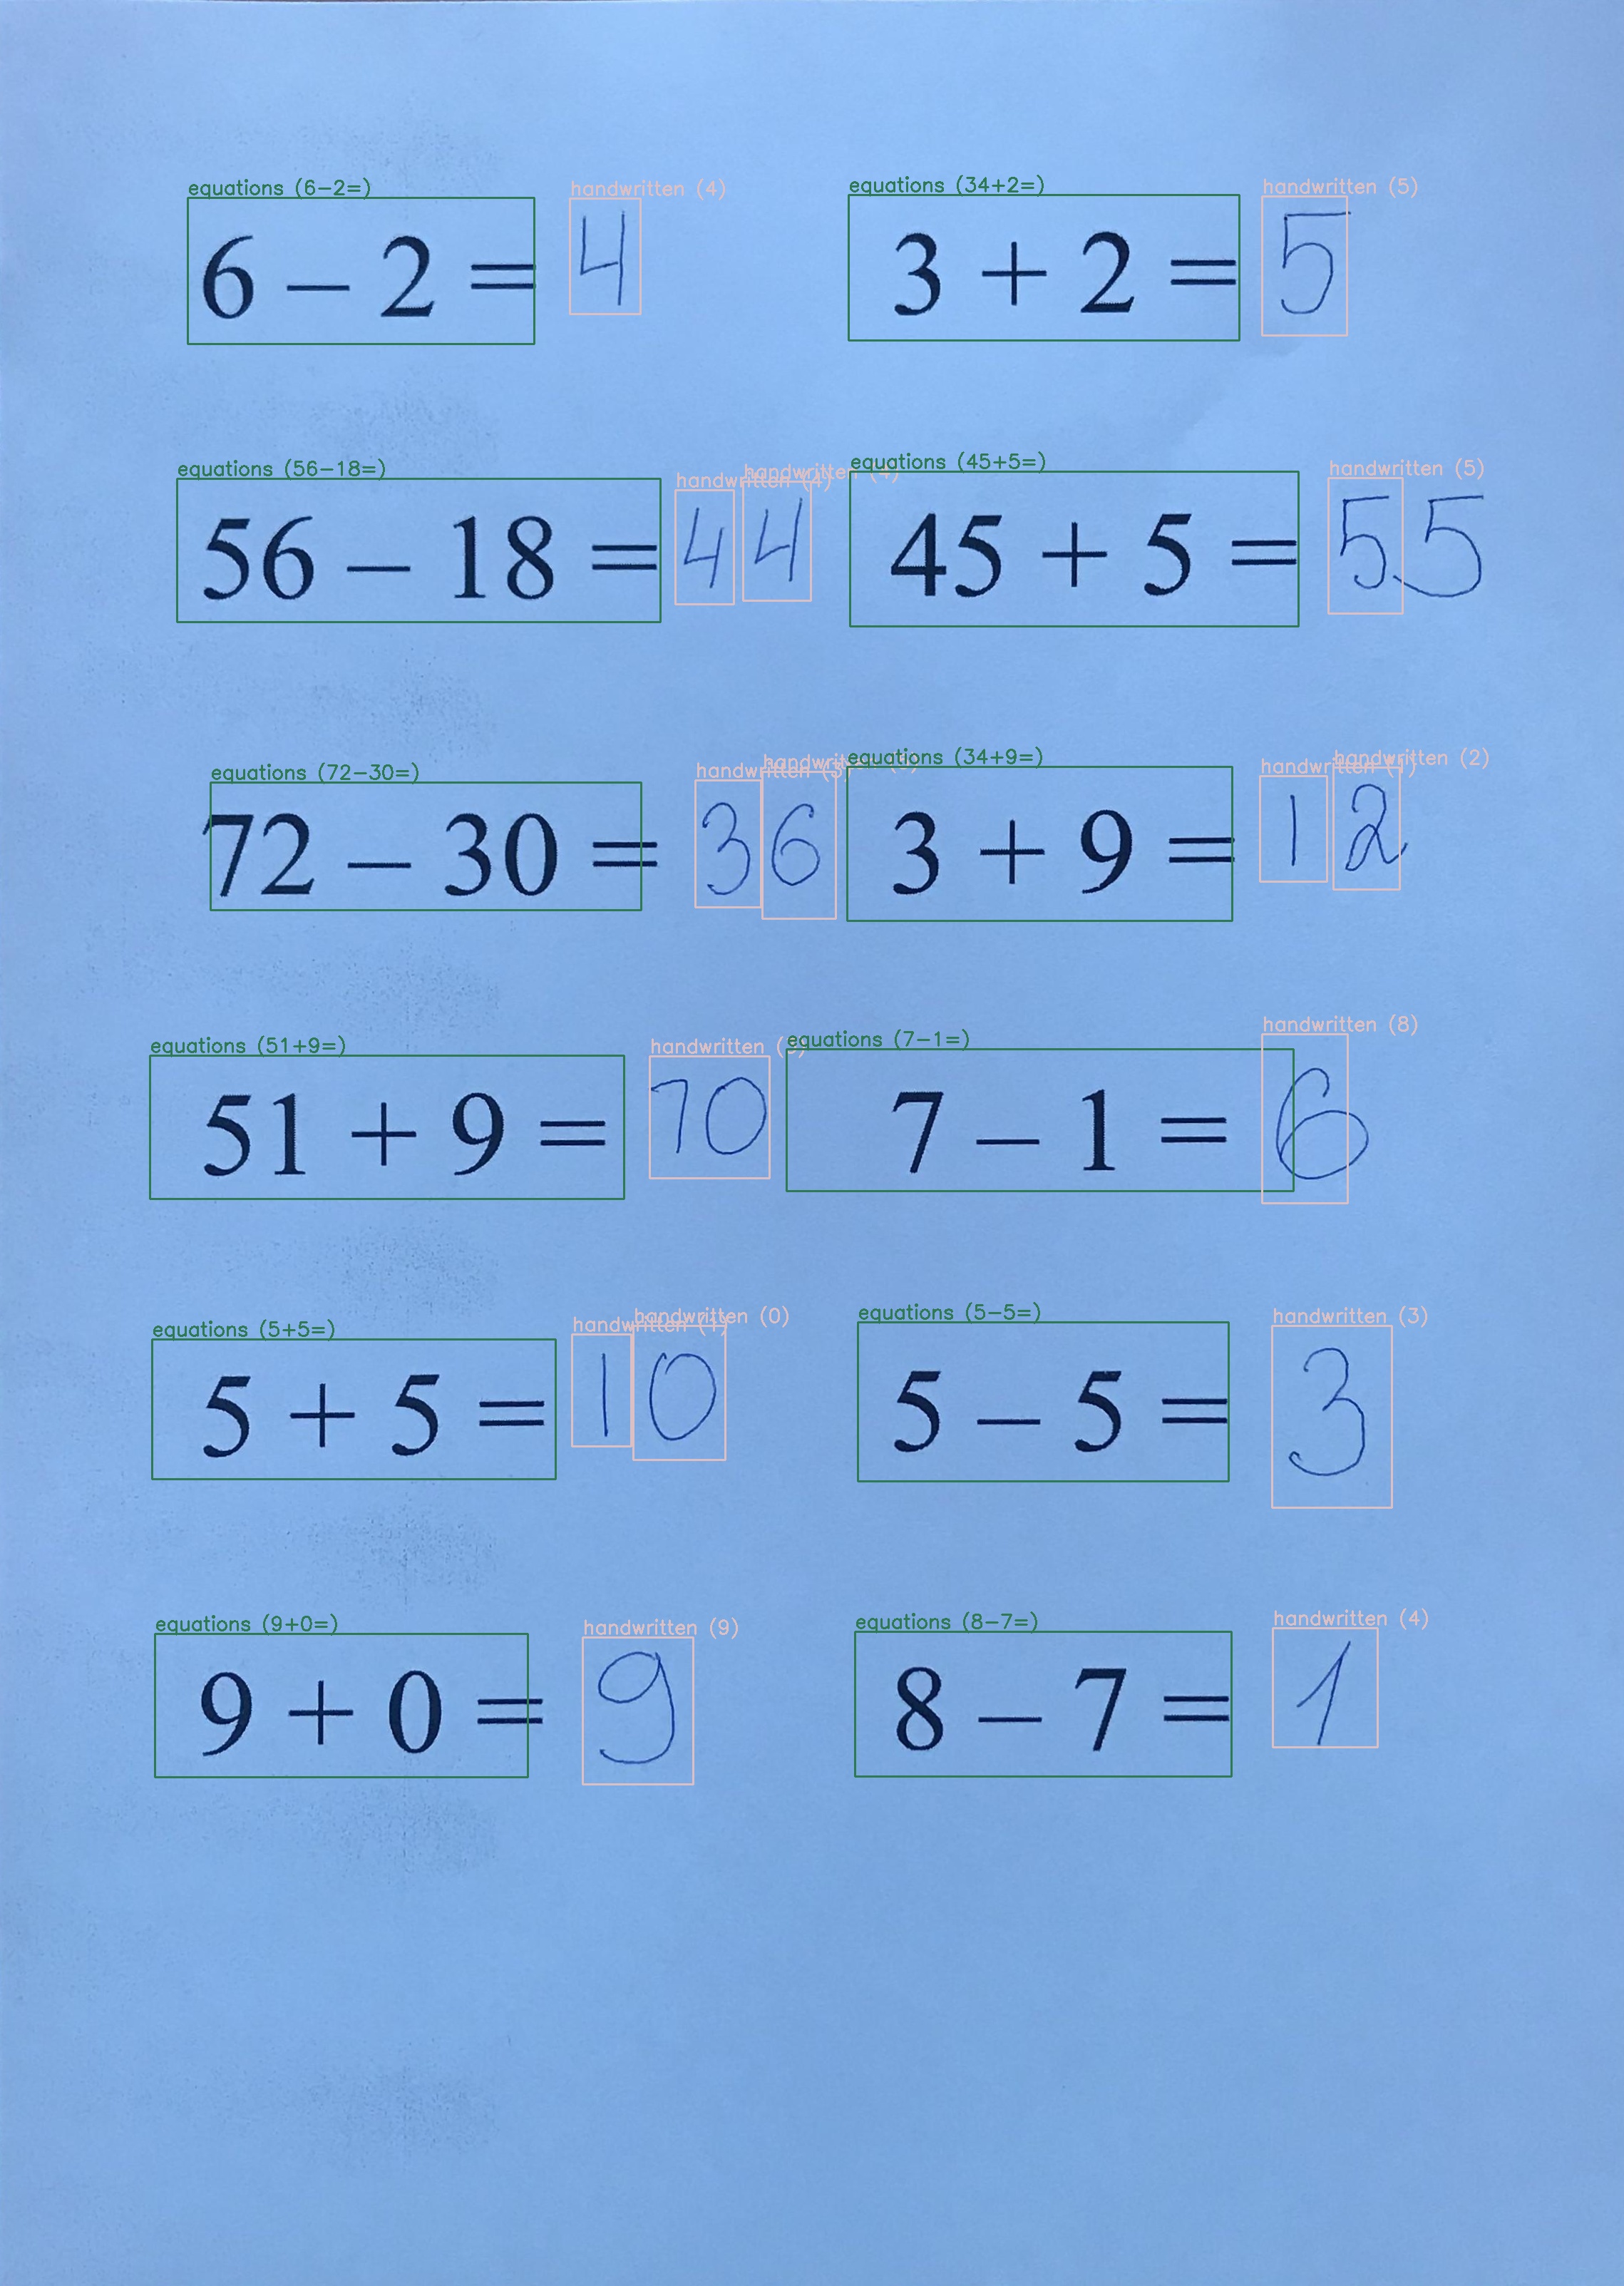 equations (6-2=) handwritten (4) equations (34+2=) handwritten (5)
6 – 2 = 4 3 + 2 = 5
equations (56-18=) handwritten (4) handwritten (4) equations (45+5=) handwritten (5)
56 – 18 = 44 45 + 5 = 55
equations (72-30=) handwritten (3) handwritten equations (34+9=) handwritten (1) handwritten (2)
72 – 30 = 36 3 + 9 = 12
equations (51+9=) handwritten equations (7-1=) handwritten (8)
51 + 9 = 70 7 – 1 = 6
equations (5+5=) handwritten (1) handwritten (0) equations (5-5=) handwritten (3)
5 + 5 = 10 5 – 5 = 3
equations (9+0=) handwritten (9) equations (8-7=) handwritten (4)
9 + 0 = 9 8 – 7 = 1